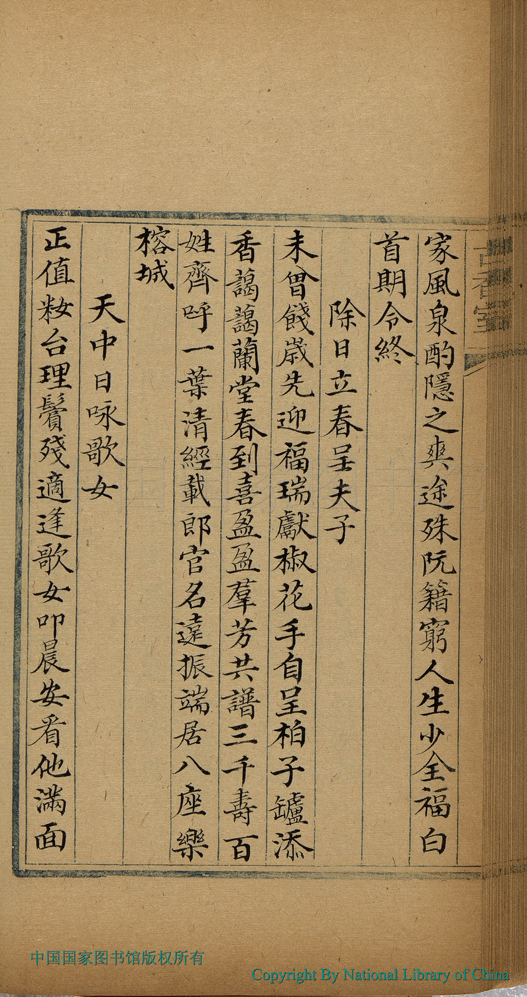 古香室
家風泉酌隱之爽途殊阮籍窮人生少全福白
首期令終
除日立春呈夫子
未曾餞歲先迎福瑞獻椒花手自呈柏子罏添
香藹藹蘭堂春到喜盈盈羣芳共譜三千壽百
姓齊呼一葉清經載郎官名遠振端居八座樂
榕城
天中日咏歌女
正值妝台理鬢殘適逢歌女叩晨安看他滿面
中国国家图书馆版权所有
Copyright By National Library of China